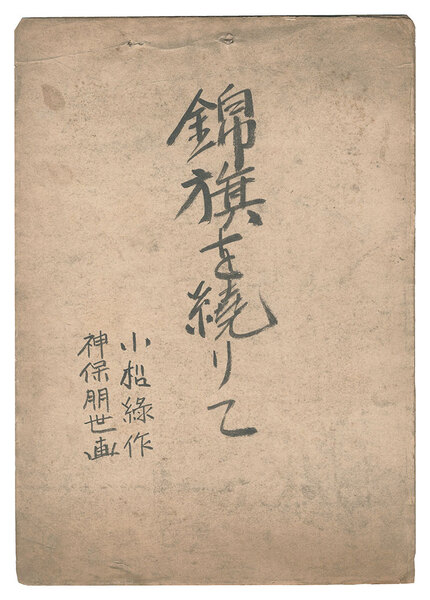 錦旗を繞りて
小松緑作
神保朋世画